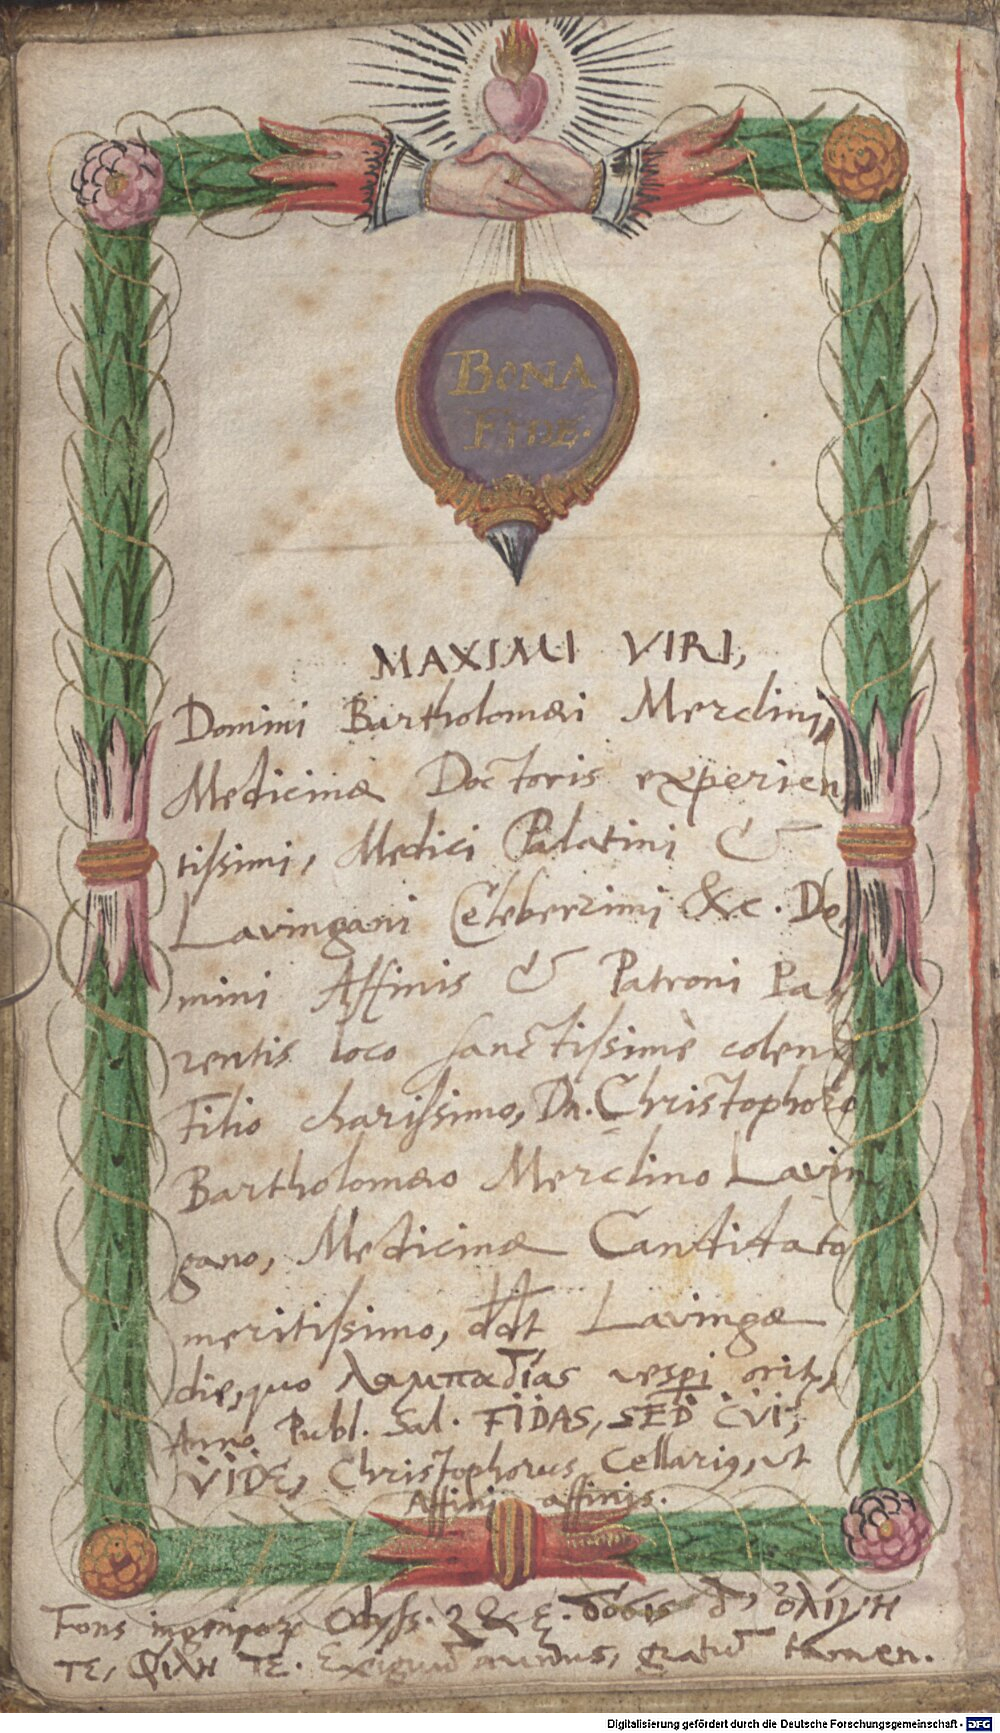 BONA
FIDE.
MAXIMI VIRI,
Domini Bartholomæi Merclini,
Medicinæ Doctoris experien
tißimi, Medici Palatini &
Lavingani Celeberrimi &c. Do
mini Affinis & Patroni Pa
rentis loco sanctißimè colen
Filio charißimo, Dn. Christophoro
Bartholomæo Merclino Lavin
gano, Medicinæ Candidato
meritißimo, ddt Lavingæ
die, quo λαμπαδίας vesperi orit,
Anno Publ. Sal. FIDAS, SED CVI,
VIDE, Christophorus Cellarius, ut
Affini affinis.
Fons Odyss. δόσις δ' ὀλίγη
τε, φίλη τε. Exiguum munus, gratum tamen.
Digitalisierung gefördert durch die Deutsche Forschungsgemeinschaft - DFG